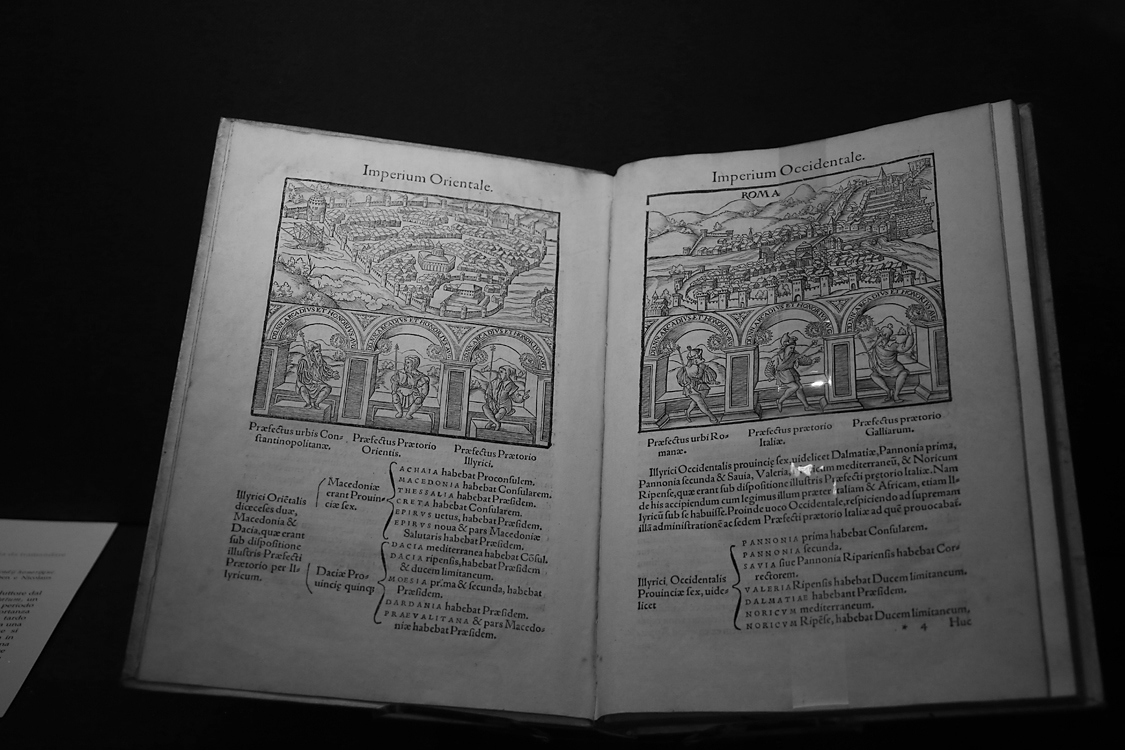 Imperium Orientale.
DIVIS ARCADIVS ET HONORIVS
Præfectus urbis Con-
stantinopolitanæ.
Præfectus Prætorio
Orientis.
Præfectus Prætorio
Illyrici.
Illyrici Oriẽtalis
diœceses duæ,
Macedonia &
Dacia, quæ erant
sub dispositione
illustris Præfecti
Prætorio per Il-
lyricum.
Macedoniæ
erant Prouin-
ciæ sex.
ACHAIA habebat Proconsulem.
MACEDONIA habebat Consularem.
THESSALIA habebat Præsidem.
CRETA habebat Consularem.
EPIRVS uetus, habebat Præsidem.
EPIRVS noua & pars Macedoniæ
Salutaris habebat Præsidem.
Daciæ Pro-
uincię quinq;
DACIA mediterranea habebat Cõsul.
DACIA ripensis, habebat Præsidem
& ducem limitaneum.
MOESIA prima & secunda, habebat
Præsidem.
DARDANIA habebat Præsidem.
PRAEVALITANA & pars Macedo-
niæ habebat Præsidem.
Imperium Occidentale.
ROMA
Præfectus urbi Ro-
manæ.
Præfectus prætorio
Italiæ.
Præfectus prætorio
Galliarum.
Illyrici Occidentalis prouincię sex, uidelicet Dalmatiæ, Pannonia prima,
Pannonia secunda & Sauia, Valeria, mediterraneũ, & Noricum
Ripense, quæ erant sub dispositione illustris Præfecti prętorio Italiæ. Nam
de his accipiendum cum legimus illum præter Italiam & Africam, etiam Il-
lyricũ sub se habuisse. Proinde uoco Occidentale, respiciendo ad supremam
illã administrationẽ ac sedem Præfecti prætorio Italiæ ad quẽ prouocabãt.
Illyrici Occidentalis
Prouinciæ sex, uide-
licet
PANNONIA prima habebat Consularem.
PANNONIA secunda.
SAVIA siue Pannonia Ripariensis habebat Cor-
rectorem.
VALERIA Ripensis habebat Ducem limitaneum.
DALMATIAE habebant Præsidem.
NORICVM mediterraneum.
NORICVM Ripẽse, habebat Ducem limitaneum,
* 4 Huc